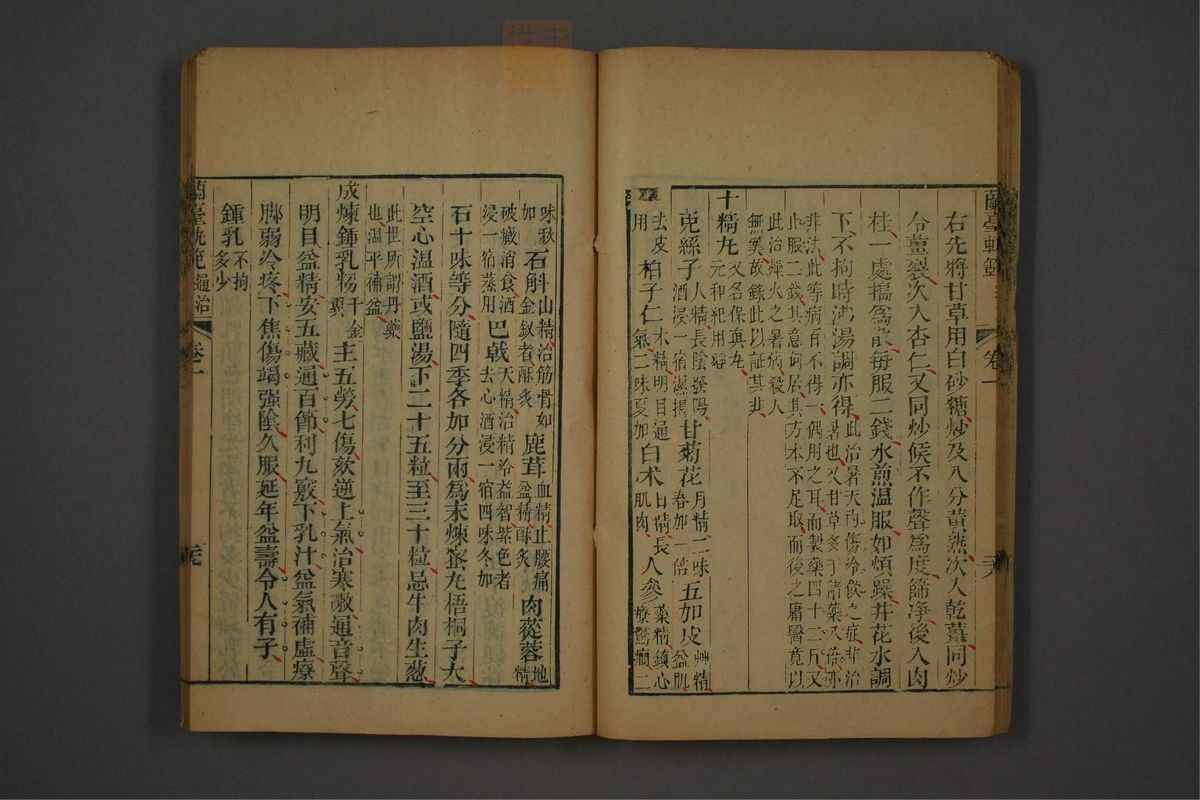 右先將甘草用白砂糖炒及八分黃熟次入乾薑同炒
令薑裂次入杏仁又同炒候不作聲爲度篩淨後入肉
桂一處擣爲散每服二錢水煎温服如煩躁井花水調
下不拘時沸湯調亦得此治暑天内傷冷飲之症非治
暑也又甘草多于諸藥八倍亦
非法此等病百不得一偶用之耳而製藥四十二斤又
止服二錢其意何居其方本不足取而後之庸醫竟以
此治燥火之暑病殺人
無筭故錄此以証其非
十精丸又名保真丸
元和紀用經
兎絲子人精長陰發陽
酒浸一宿濕擣甘菊花月精二味
春加一倍五加皮艸精
益肌
去皮
用柏子仁木精明目通
氣二味夏加白术日精長
肌肉人參藥精鎮心
療驚癎二
味秋
如石斛山精治筋骨如
金釵者酥炙鹿茸血精止腰痛
益精酥炙肉蓯蓉地
精
破癥消食酒
浸一宿蒸用巴戟天精治精冷益智紫色者
去心酒浸一宿四味冬加
石十味等分隨四季各加分兩爲末煉蜜丸梧桐子大
空心温酒或鹽湯下二十五粒至三十粒忌牛肉生葱
此世所謂丹藥
也温平補益
成煉鍾乳粉千金
翼主五勞七傷欬逆上氣治寒嗽通音聲
明目益精安五藏通百節利九竅下乳汁益氣補虛療
脚弱冷疼下焦傷竭强陰久服延年益壽令人有子
鍾乳不拘
多少
蘭臺軌範 卷一
蘭臺軌範 通治 卷一